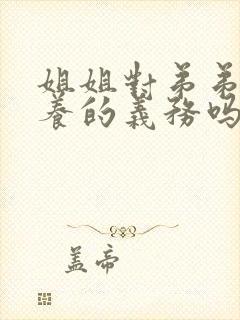 姐姐對弟弟
養的義務嗎
蓋帝